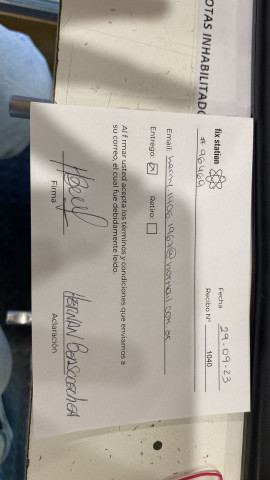 OTAS INHABILITADO
fix station
Fecha 29-09-23
# 96469
Recibo N° 1040
Email:
Entrego: ☒ Retiro: ☐
Al firmar usted acepta los términos y condiciones que enviamos a
su correo, el cual fue debidamente leido.
HERNAN
Firma Aclaración